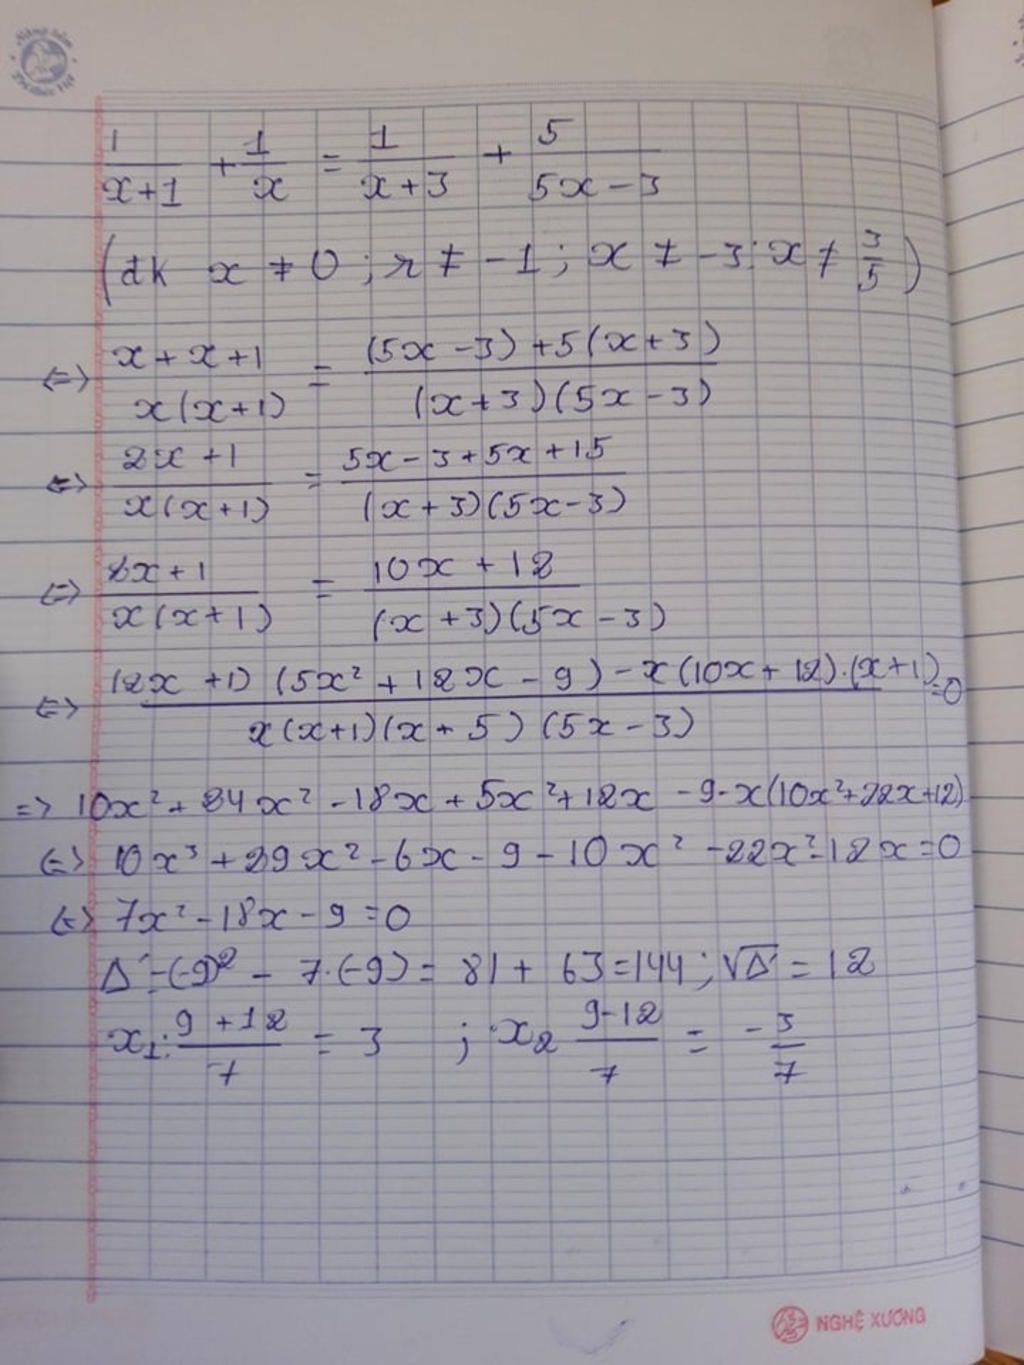 1/(x+1) + 1/x = 1/(x+3) + 5/(5x-3)
(đk x ≠ 0 ; x ≠ -1 ; x ≠ -3 ; x ≠ 3/5)
<=> (x+x+1)/(x(x+1)) = ((5x-3)+5(x+3))/((x+3)(5x-3))
<=> (2x+1)/(x(x+1)) = (5x-3+5x+15)/((x+3)(5x-3))
<=> (2x+1)/(x(x+1)) = (10x+12)/((x+3)(5x-3))
<=> ((2x+1)(5x²+12x-9)-x(10x+12).(x+1))/(x(x+1)(x+5)(5x-3)) =0
=> 10x²+24x²-18x+5x²+12x-9-x(10x²+22x+12)
<=> 10x³+29x²-6x-9-10x²-22x²-12x=0
<=> 7x²-18x-9=0
Δ'=(-9)²-7.(-9)=81+63=144; √Δ'=12
x₁: (9+12)/7 = 3 ; x₂ (9-12)/7 = -3/7
NGHỆ XƯƠNG